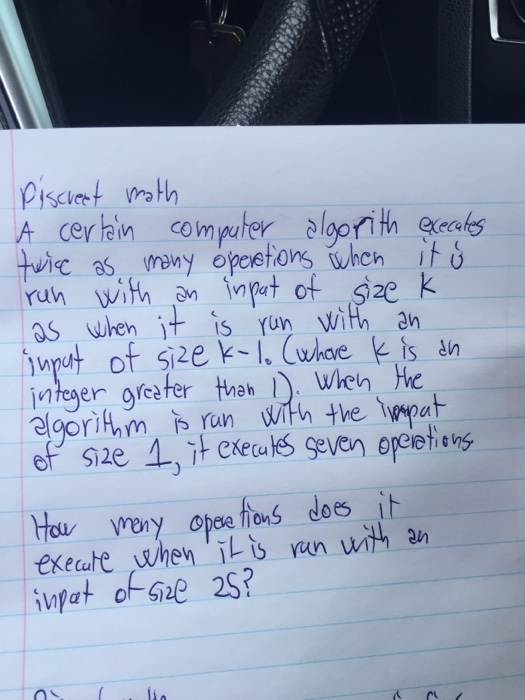 Discreet math
A certain computer algorith executes
twice as many operations when it is
run with an input of size k
as when it is run with an
input of size k-1. (where k is an
integer greater than 1). When the
algorithm is run with the input
of size 1, it executes seven operations
How many operations does it
execute when it is run with an
input of size 25?